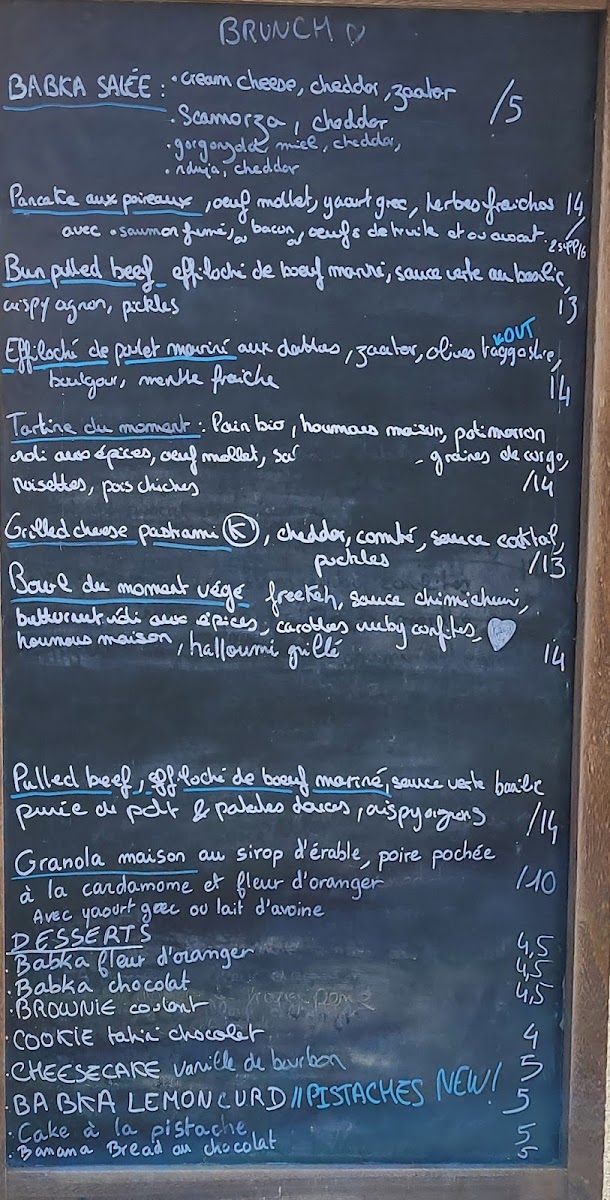 BRUNCH ♡
BABKA SALÉE : • cream cheese, cheddar, zaatar
/5
• Scamorza, cheddar
• gorgonzola, miel, cheddar,
• nduja, cheddar
Pancake aux poireaux, oeuf mollet, yaourt grec, herbes fraiches 14
avec • saumon fumé, ou bacon ou oeufs de truite et ou avocat.
Bun pulled beef effiloché de boeuf mariné, sauce verte au basilic,
crispy oignon, pickles 13
OUT
Effiloché de poulet mariné aux dattes, zaatar, olives taggiashe,
boulgour, menthe fraiche 14
Tartine du moment : Pain bio, houmous maison, potimarron
rôti aux épices, oeuf mollet, graines de courge,
noisettes, pois chiches /14
Grilled cheese pastrami (K), cheddar, comté, sauce cocktail,
pickles /13
Bowl du moment végé freekeh, sauce chimichuri,
butternut rôti aux épices, carottes ruby confites,
houmous maison, halloumi grillé 14
Pulled beef, effiloché de boeuf mariné, sauce verte basilic
purée de pdt & patates douces, crispy oignons /14
Granola maison au sirop d'érable, poire pochée
à la cardamome et fleur d'oranger /10
Avec yaourt grec ou lait d'avoine
DESSERTS
• Babka fleur d'oranger 4,5
• Babka chocolat 4,5
• BROWNIE coulant 4,5
• COOKIE tahini chocolat 4
• CHEESECAKE vanille de bourbon 5
• BABKA LEMON CURD // PISTACHES NEW! 5
• Cake à la pistache 5
• Banana Bread au chocolat 5